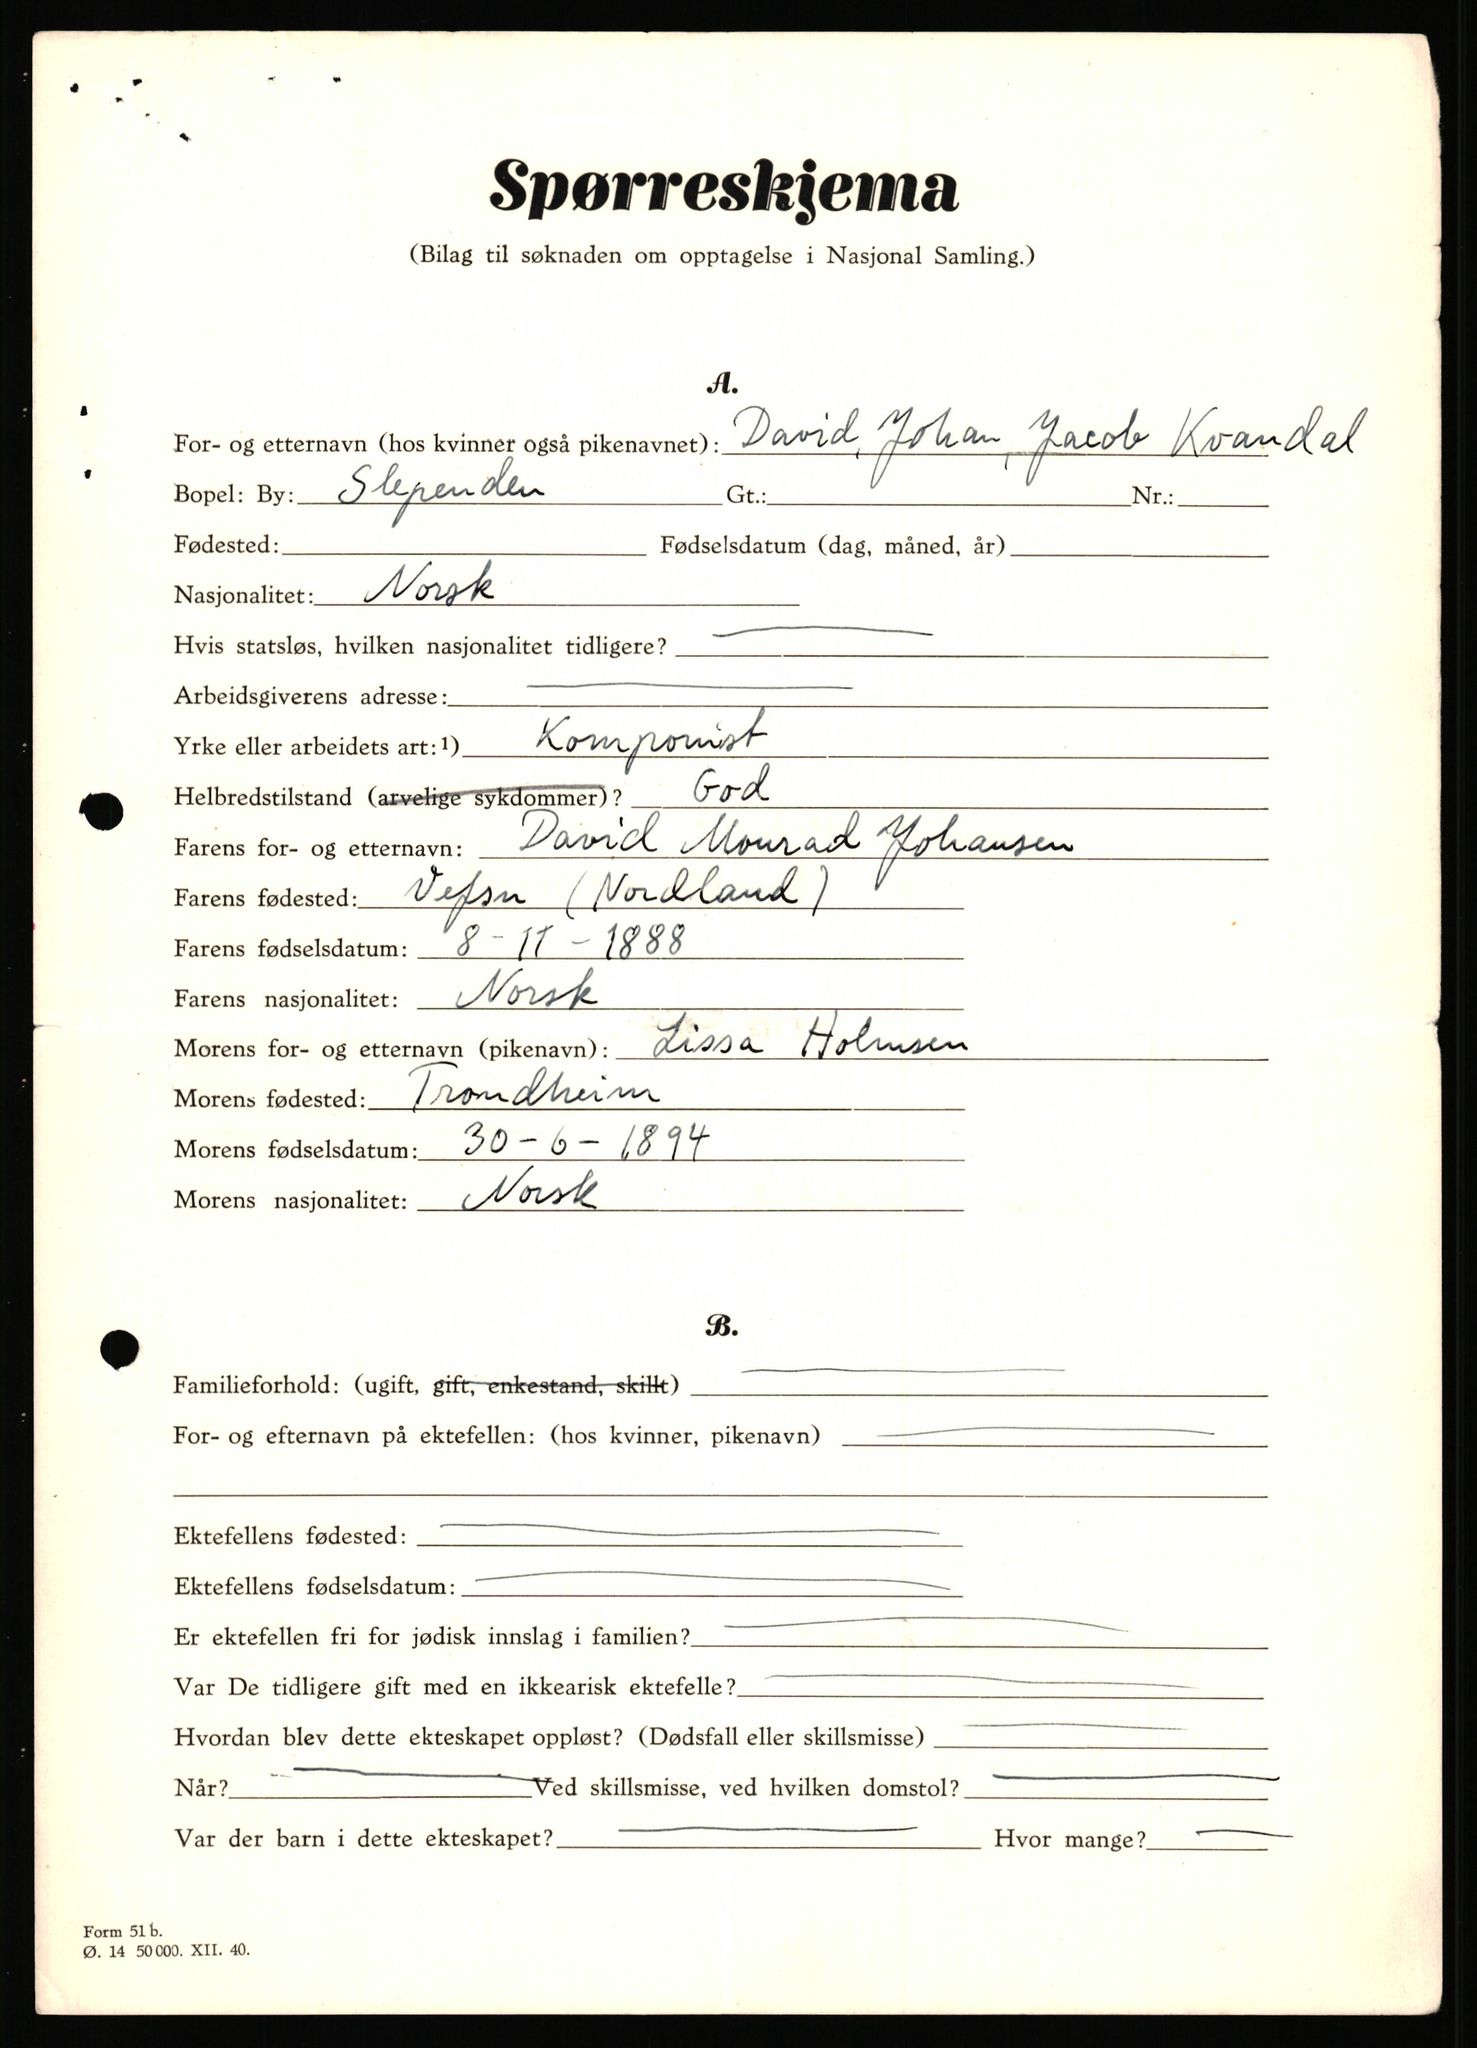 Spørreskjema
(Bilag til søknaden om opptagelse i Nasjonal Samling.)
A.
For- og etternavn (hos kvinner også pikenavnet): David, Johan, Jacob Kvandal
Bopel: By: Slependen Gt.: Nr.:
Fødested: Fødselsdatum (dag, måned, år)
Nasjonalitet: Norsk
Hvis statsløs, hvilken nasjonalitet tidligere?
Arbeidsgiverens adresse:
Yrke eller arbeidets art: 1) Komponist
Helbredstilstand (arvelige sykdommer)? God
Farens for- og etternavn: David Monrad Johansen
Farens fødested: Vefsn (Nordland)
Farens fødselsdatum: 8-11-1888
Farens nasjonalitet: Norsk
Morens for- og etternavn (pikenavn): Lissa Holmsen
Morens fødested: Trondheim
Morens fødselsdatum: 30-6-1894
Morens nasjonalitet: Norsk
B.
Familieforhold: (ugift, gift, enkestand, skillt)
For- og efternavn på ektefellen: (hos kvinner, pikenavn)
Ektefellens fødested:
Ektefellens fødselsdatum:
Er ektefellen fri for jødisk innslag i familien?
Var De tidligere gift med en ikkearisk ektefelle?
Hvordan blev dette ekteskapet oppløst? (Dødsfall eller skillsmisse)
Når? Ved skillsmisse, ved hvilken domstol?
Var der barn i dette ekteskapet? Hvor mange?
Form 51 b.
Ø. 14 50 000. XII. 40.